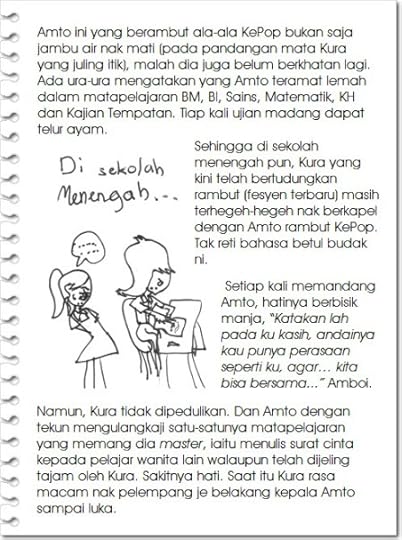 Amto ini yang berambut ala-ala KePop bukan saja
jambu air nak mati (pada pandangan mata Kura
yang juling itik), malah dia juga belum berkhatan lagi.
Ada ura-ura mengatakan yang Amto teramat lemah
dalam matapelajaran BM, BI, Sains, Matematik, KH
dan Kajian Tempatan. Tiap kali ujian madang dapat
telur ayam.
Di sekolah
Menengah...
Sehingga di sekolah
menengah pun, Kura yang
kini telah bertudungkan
rambut (fesyen terbaru) masih
terhegeh-hegeh nak berkapel
dengan Amto rambut KePop.
Tak reti bahasa betul budak
ni.
.....
Setiap kali memandang
Amto, hatinya berbisik
manja, "Katakan lah
pada ku kasih, andainya
kau punya perasaan
seperti ku, agar... kita
bisa bersama..." Amboi.
Namun, Kura tidak dipedulikan. Dan Amto dengan
tekun mengulangkaji satu-satunya matapelajaran
yang memang dia master, iaitu menulis surat cinta
kepada pelajar wanita lain walaupun telah dijeling
tajam oleh Kura. Sakitnya hati. Saat itu Kura rasa
macam nak pelempang je belakang kepala Amto
sampai luka.